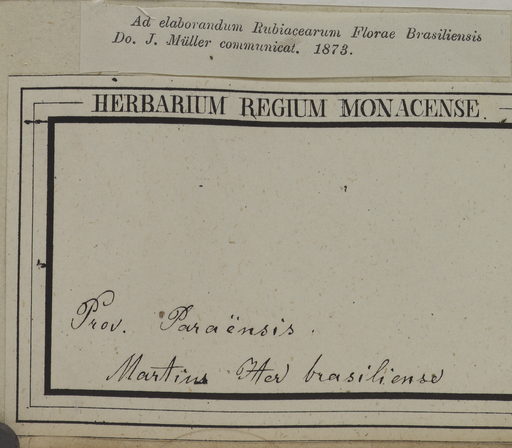 Ad elaborandum Rubiacearum Florae Brasiliensis
Do. J. Müller communicat. 1873.
HERBARIUM REGIUM MONACENSE.
Prov. Paraënsis.
Martius Iter brasiliense